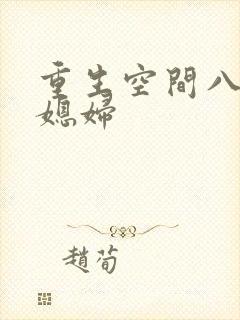 重生空間八
媳婦
趙荀